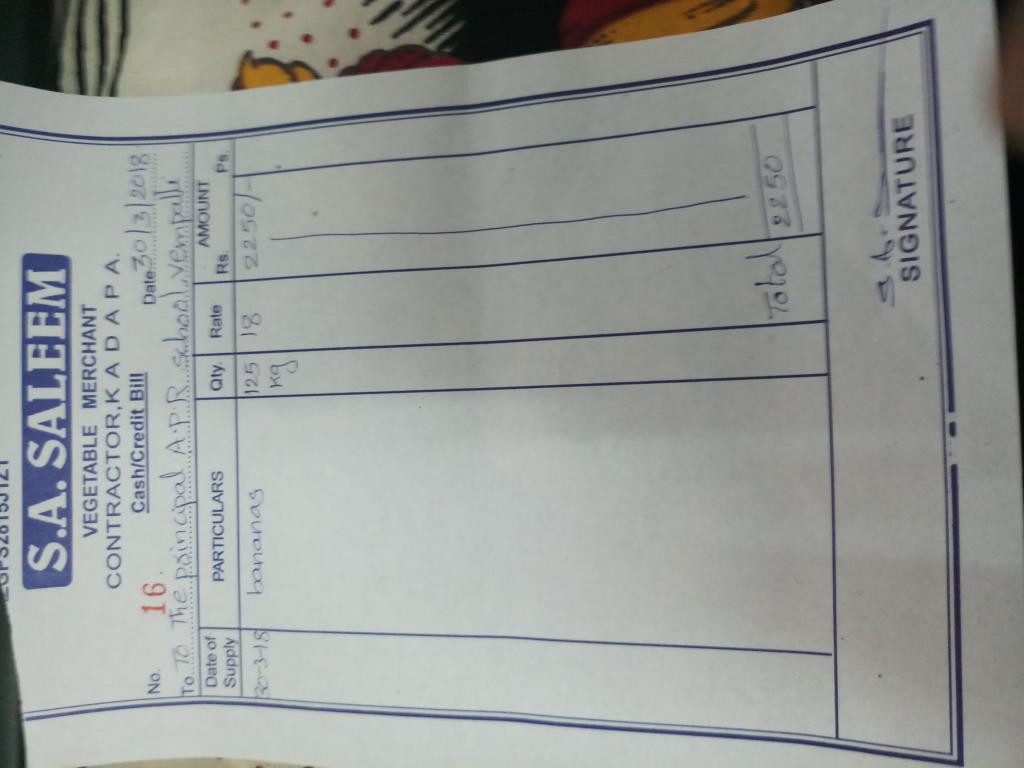 S.A. SALEEM
VEGETABLE MERCHANT
CONTRACTOR, K A D A P A.
Cash/Credit Bill
No. 16. Date 30/3/2018
To. To The principal A.P.R. school, vempalli
Date of Supply PARTICULARS Qty. Rate AMOUNT Rs. Ps.
30-3-18 bananas 125 kg 18 2250/-
Total 2250
SIGNATURE